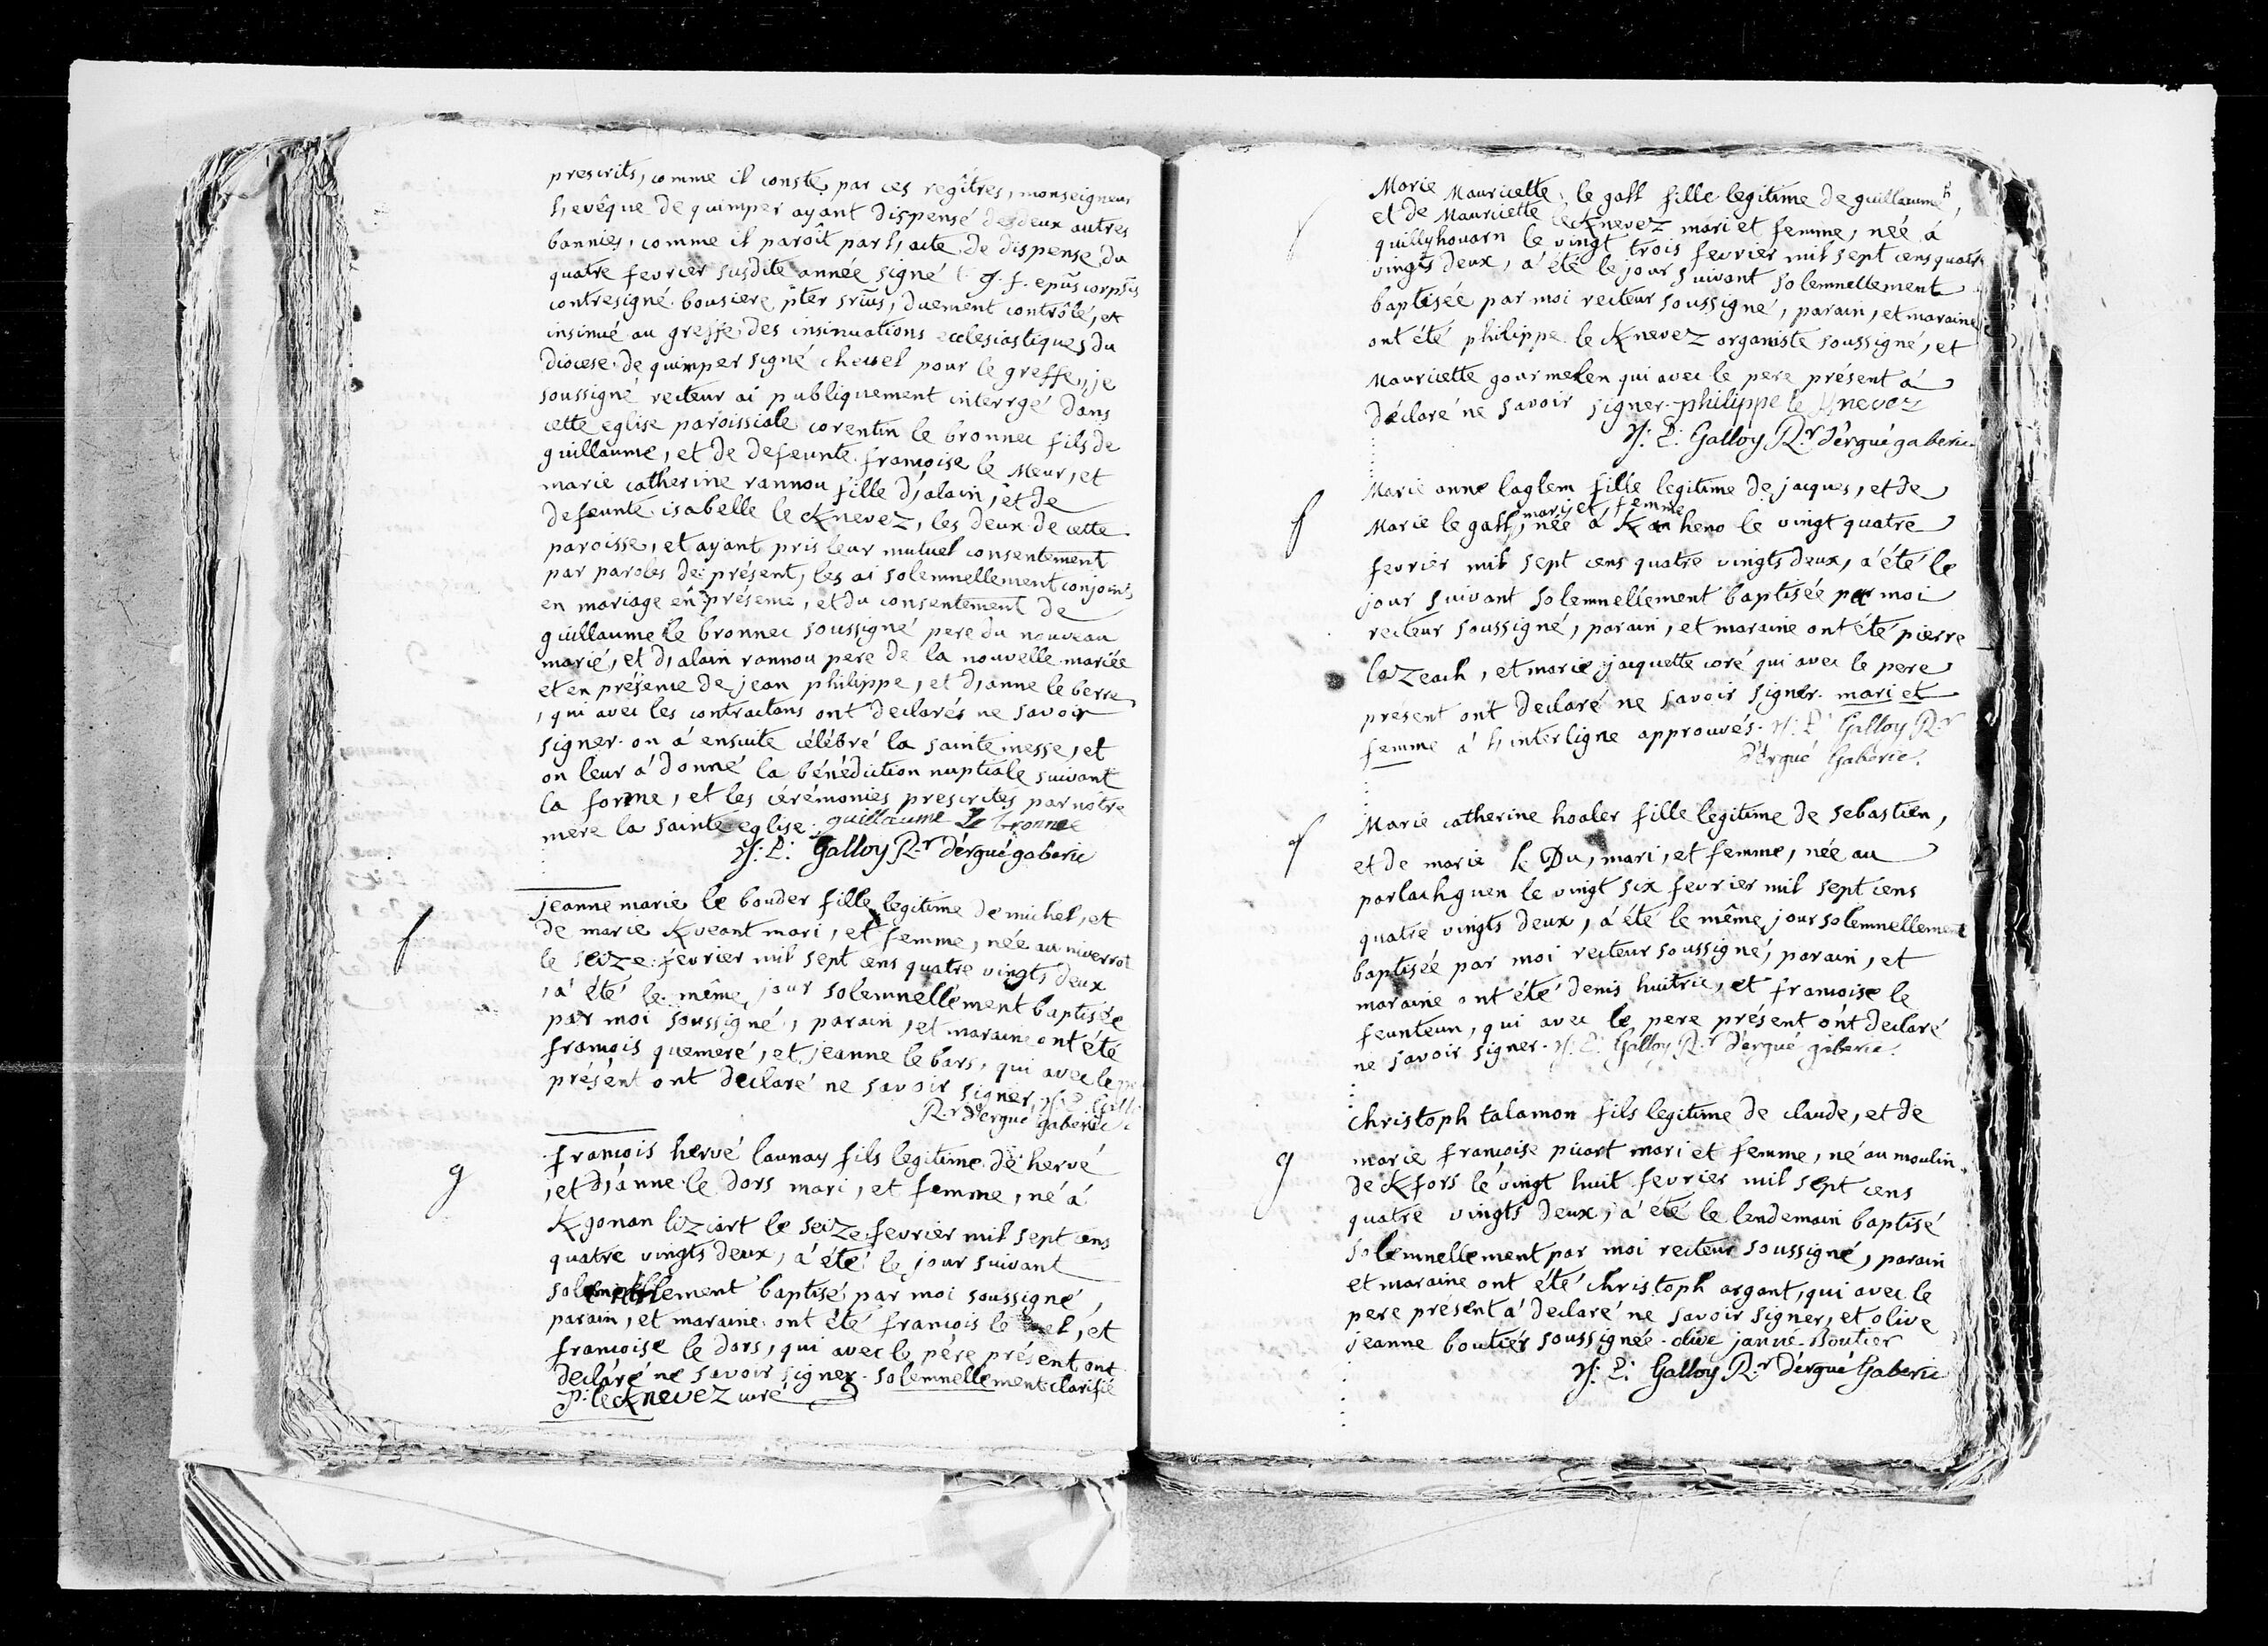 prescrits, comme il conste par ces regîtres, monseigneur
l, evêque de quimper ayant dispensé des deux autres
bannies, comme il paroît par l, acte de dispense du
quatre fevrier susdite année signé t g. f. epũs corpsts
contresigné bousiere, pter srius, duement contrôlé, et
insinué au greffe des insinuations ecclesiastiques du
diocese de quimper signé chewel pour le greffe, je
soussigné recteur ai publiquement interrgé dans
cette eglise paroissiale corentin le bronnec fils de
guillaume, et de defeunte françoise le Meur, et
marie catherine rannou fille d, alain, et de
defeunte isabelle le Knevez, les deux de cette
paroisse, et ayant pris leur mutuel consentement
par paroles de présent, les ai solemnellement conjoints
en mariage en présence, et du consentement de
guillaume le bronnec soussigné pere du nouveau
marié, et d, alain rannou pere de la nouvelle mariée
et en présence de jean philippe, et d, anne le berre
, qui avec les contractans ont declarés ne savoir
signer. on á ensuite célébré la sainte messe, et
on leur á donné la bénédiction nuptiale suivant
la forme, et les cérémonies prescrites par nôtre
mere la sainte eglise. guillaume Le bronnec
H: P: Galloy R.r d'ergué gaberic
f
jeanne marie le bouder fille legitime de michel, et
de marie Kveant mari, et femme, née au niverrot
le seize fevrier mil sept cens quatre vingts deux
, á été le même jour solemnellement baptisée
par moi soussigné, parain, et maraine ont été
françois quemeré, et jeanne le bars, qui avec le
présent ont declaré ne savoir signer. H: P. Gall
R.r d'ergué gaberic
g
françois hervé launay fils legitime de hervé
, et d, anne le dors mari, et femme, né á
Kgonan lizıart le seize fevrier mil sept cens
quatre vingts deux, á été le jour suivant
solemnellement baptisé par moi soussigné,
parain, et maraine ont été françois le et
françoise le dors, qui avec le pére présent ont
declaré ne savoir signer. solemnellement clarifié
P: le Knevez curé
f
Marie Mauricette le gall fille legitime de guillaume,
et de Mauricette le Knevez mari et femme, née á
quillyhouarn le vingt trois fevrier mil sept cens quatre
vingts deux, á été le jour suivant solemnellement
baptisée par moi recteur soussigné, parain, et maraine
ont été philippe le Knevez organiste soussigné, et
Mauricette gourmelen qui avec le pere présent á
déclaré ne savoir signer. philippe le Knevez
H: P: Galloy R.r d'ergué gaberic.
f
Marie anne laglem fille legitime de jacques, et de
mari et femme
Marie le gall, née á K an heno le vingt quatre
fevrier mil sept cens quatre vingts deux, á été le
jour suivant solemnellement baptisée par moi
recteur soussigné, parain, et maraine ont été pierre
lazeach, et marie jacquette coré qui avec le pere
présent ont declaré ne savoir signer. mari et
femme á l, interligne approuvés. H: P: Galloy R.r
d'Ergué Gaberic.
f
Marie catherine hoaler fille legitime de sebastien,
et de marie le Du, mari, et femme, née au
parlachguen le vingt six fevrier mil sept cens
quatre vingts deux, á été le même jour solemnellement
baptisée par moi recteur soussigné, parain, et
maraine ont été denis huitric, et françoise le
feunteun, qui avec le pere présent ont declaré
ne savoir signer. H: P: Galloy R.r d'ergué gaberic.
g
christoph talamon fils legitime de claude, et de
marie françoise picart mari et femme, né au moulin
de Kfors le vingt huit fevrier mil sept cens
quatre vingts deux, á été le lendemain baptisé
solemnellement par moi recteur soussigné, parain
et maraine ont été christoph argant, qui avec le
pere présent á declaré ne savoir signer, et olive
jeanne boutiér soussignée. olive janne Boutier
H: P: Galloy R.r d'ergué Gaberic